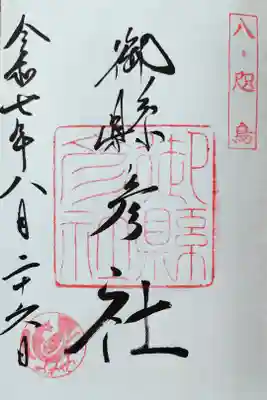 八咫烏
御縣彦社
御縣彦社
令和七年八月二十六日